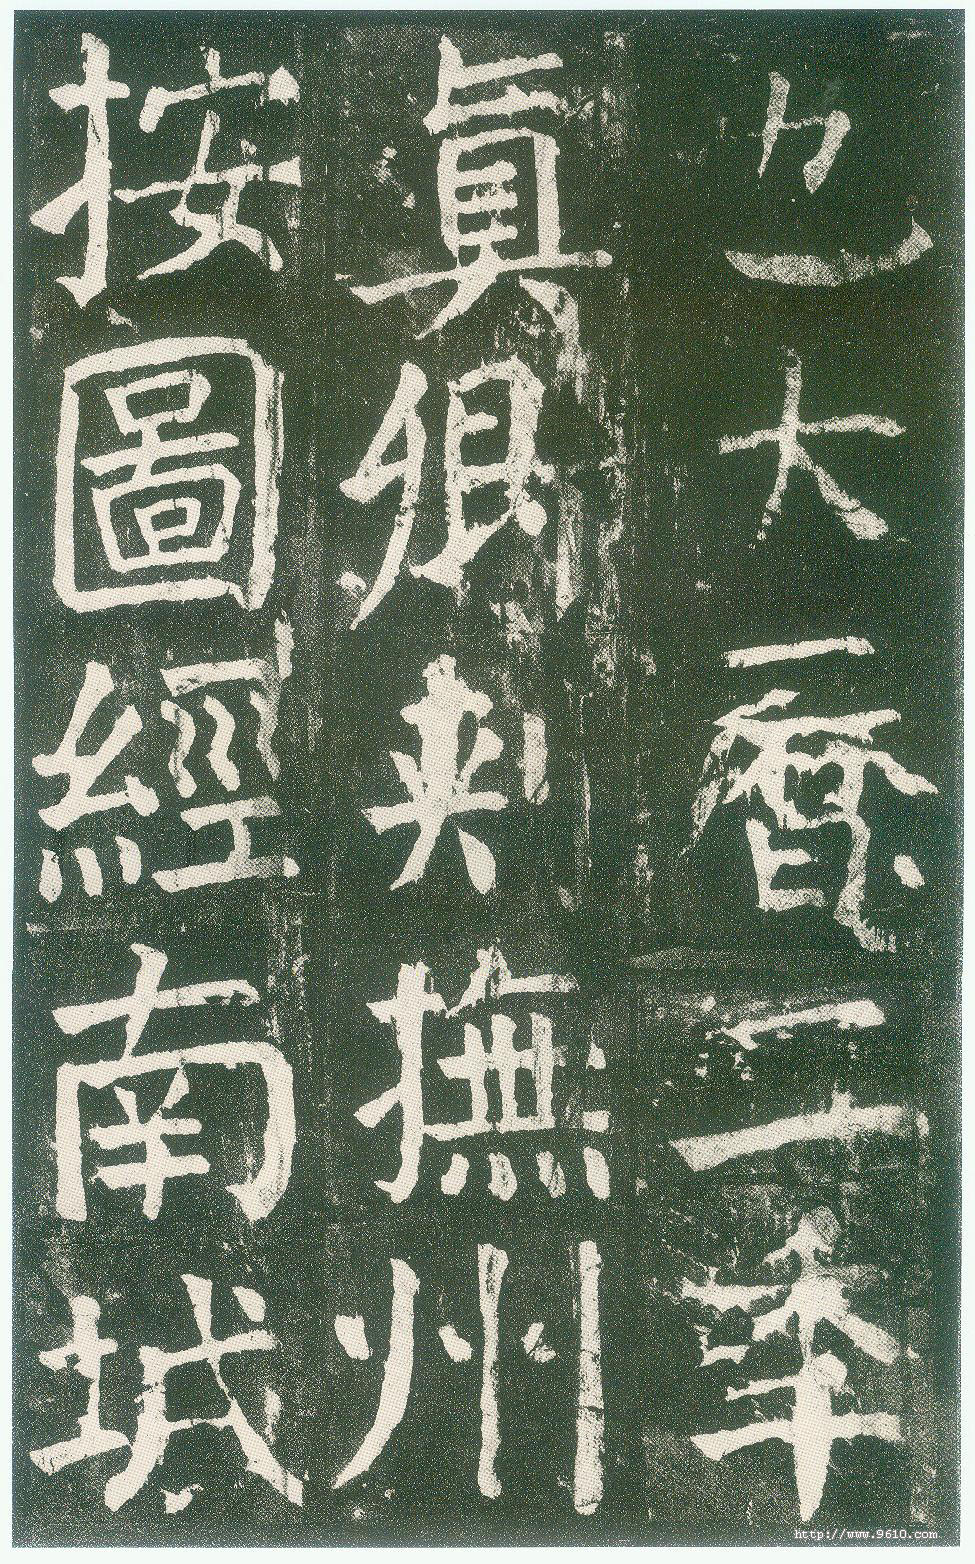 也大曆三年
真卿刺撫州
按圖經南城
http://www.9610.com